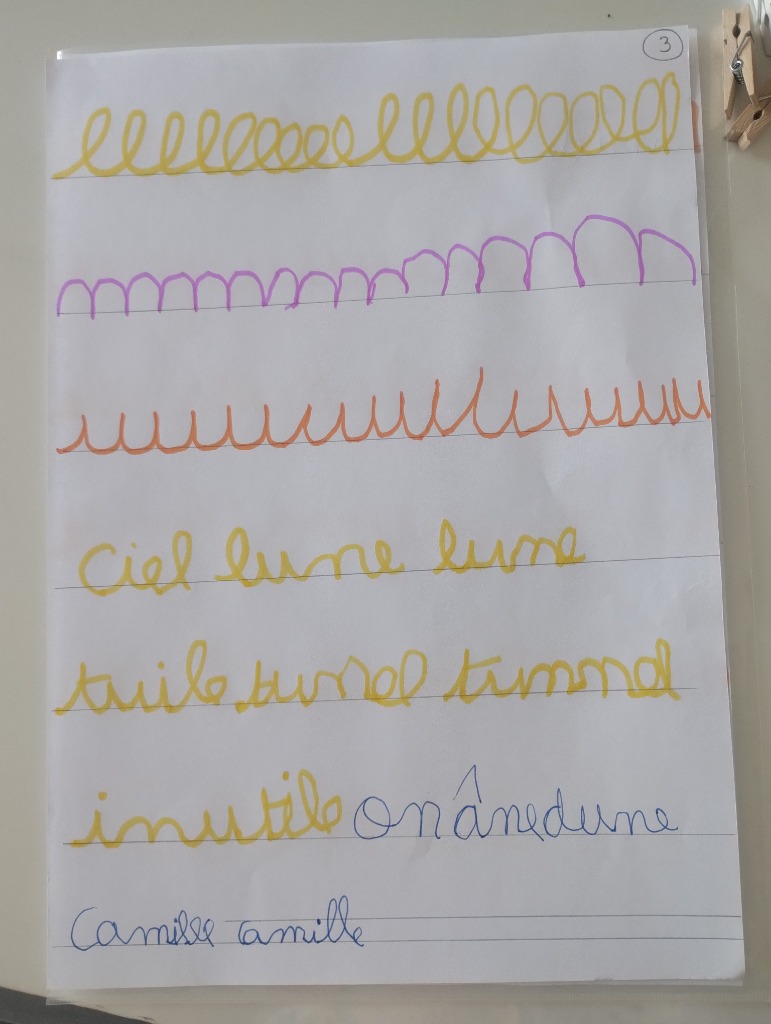 3
ciel lune lune
tuile tunel tunnel
inutile on âne dune
Camille amille